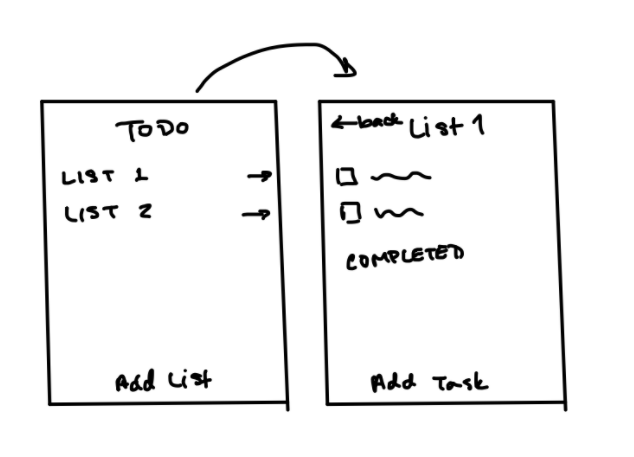 TODO
LIST 1 →
LIST 2 →
Add List
← back List 1
COMPLETED
Add Task